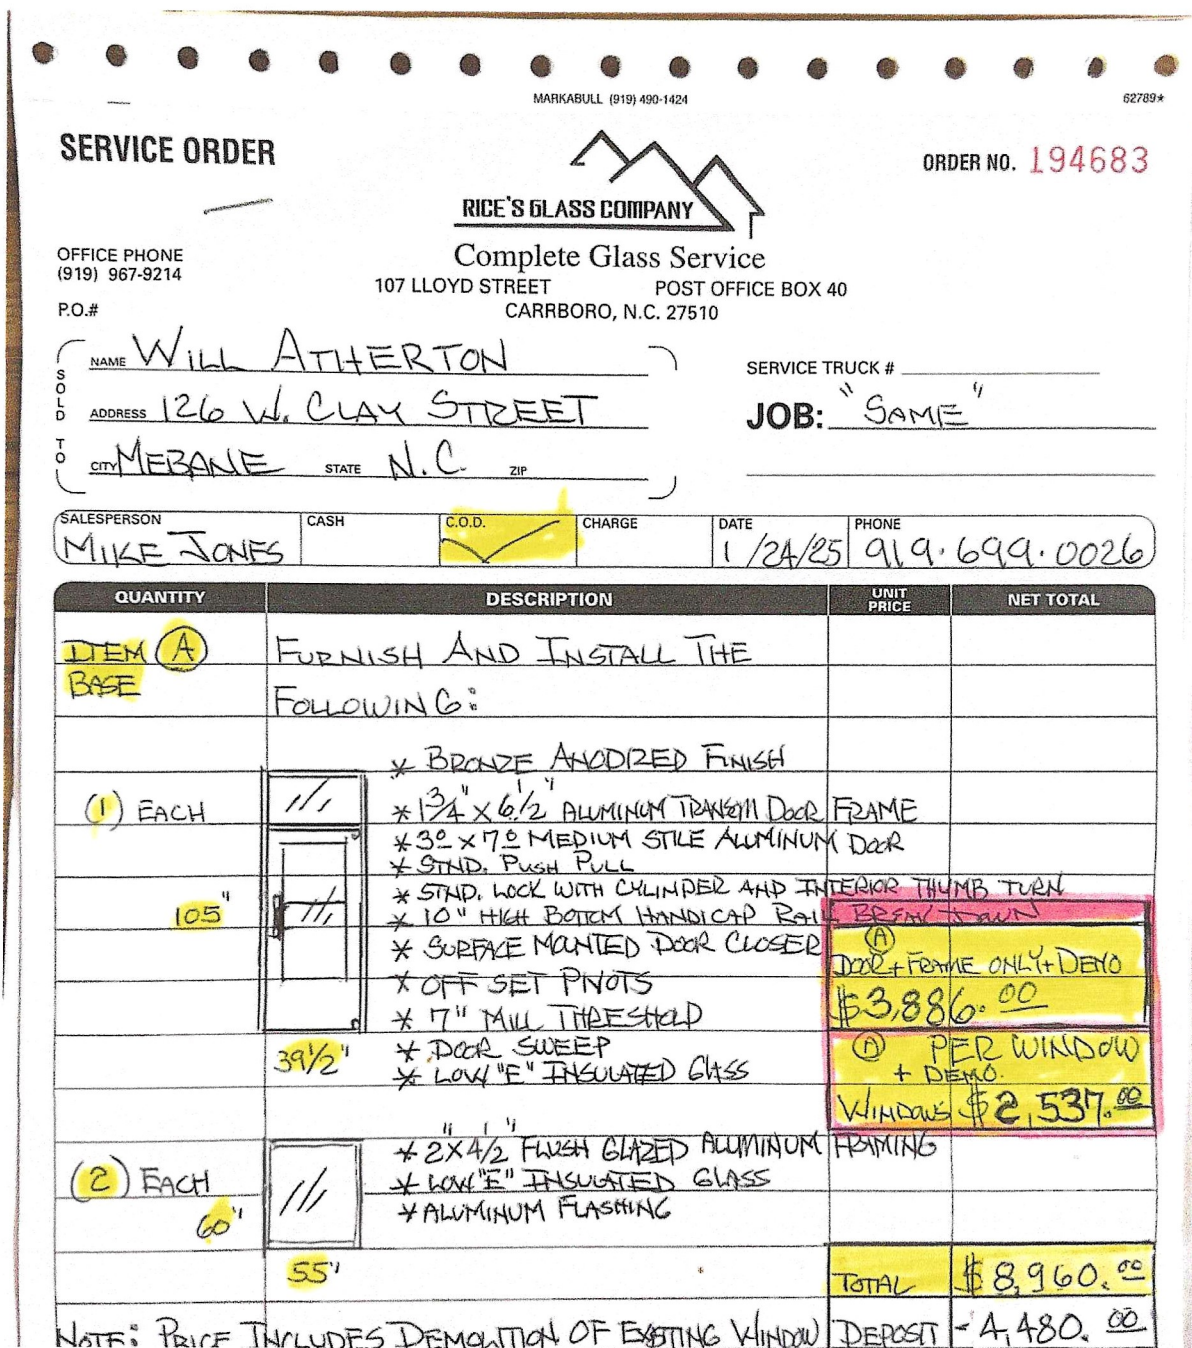 MARKABULL (919) 490-1424
62789*
SERVICE ORDER
ORDER NO. 194683
RICE'S GLASS COMPANY
Complete Glass Service
OFFICE PHONE
(919) 967-9214
107 LLOYD STREET POST OFFICE BOX 40
CARRBORO, N.C. 27510
P.O.#
SOLD TO
NAME WILL ATHERTON
ADDRESS 126 W. CLAY STREET
CITY MEBANE STATE N.C. ZIP
SERVICE TRUCK #
JOB: "SAME"
SALESPERSON CASH C.O.D. CHARGE DATE PHONE
MIKE JONES ✓ 1/24/25 919.699.0026
QUANTITY DESCRIPTION UNIT PRICE NET TOTAL
ITEM A FURNISH AND INSTALL THE
BASE FOLLOWING:
* BRONZE ANODIZED FINISH
(1) EACH * 1 3/4" X 6 1/2" ALUMINUM TRANSOM DOOR FRAME
* 3⁰ X 7⁰ MEDIUM STILE ALUMINUM DOOR
* STND. PUSH PULL
* STND. LOCK WITH CYLINDER AND INTERIOR THUMB TURN
105" * 10" HIGH BOTTOM HANDICAP RAIL
* SURFACE MOUNTED DOOR CLOSER
* OFF SET PIVOTS
* 7" MILL THRESHOLD
39 1/2" * DOOR SWEEP
* LOW "E" INSULATED GLASS
BREAK DOWN
A
DOOR + FRAME ONLY + DEMO
$3,886.00
A PER WINDOW
+ DEMO.
WINDOWS $2,537.00
* 2 X 4 1/2" FLUSH GLAZED ALUMINUM FRAMING
(2) EACH * LOW "E" INSULATED GLASS
60" * ALUMINUM FLASHING
55"
TOTAL $8,960.00
NOTE: PRICE INCLUDES DEMOLITION OF EXISTING WINDOW
DEPOSIT - 4,480.00